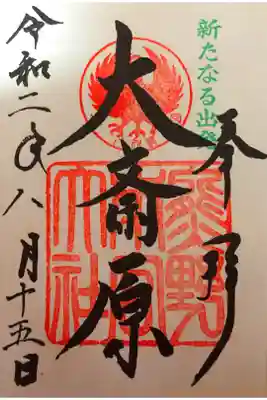 新たなる出発
奉拝
大斎原
熊野
大社
令和二年八月十五日